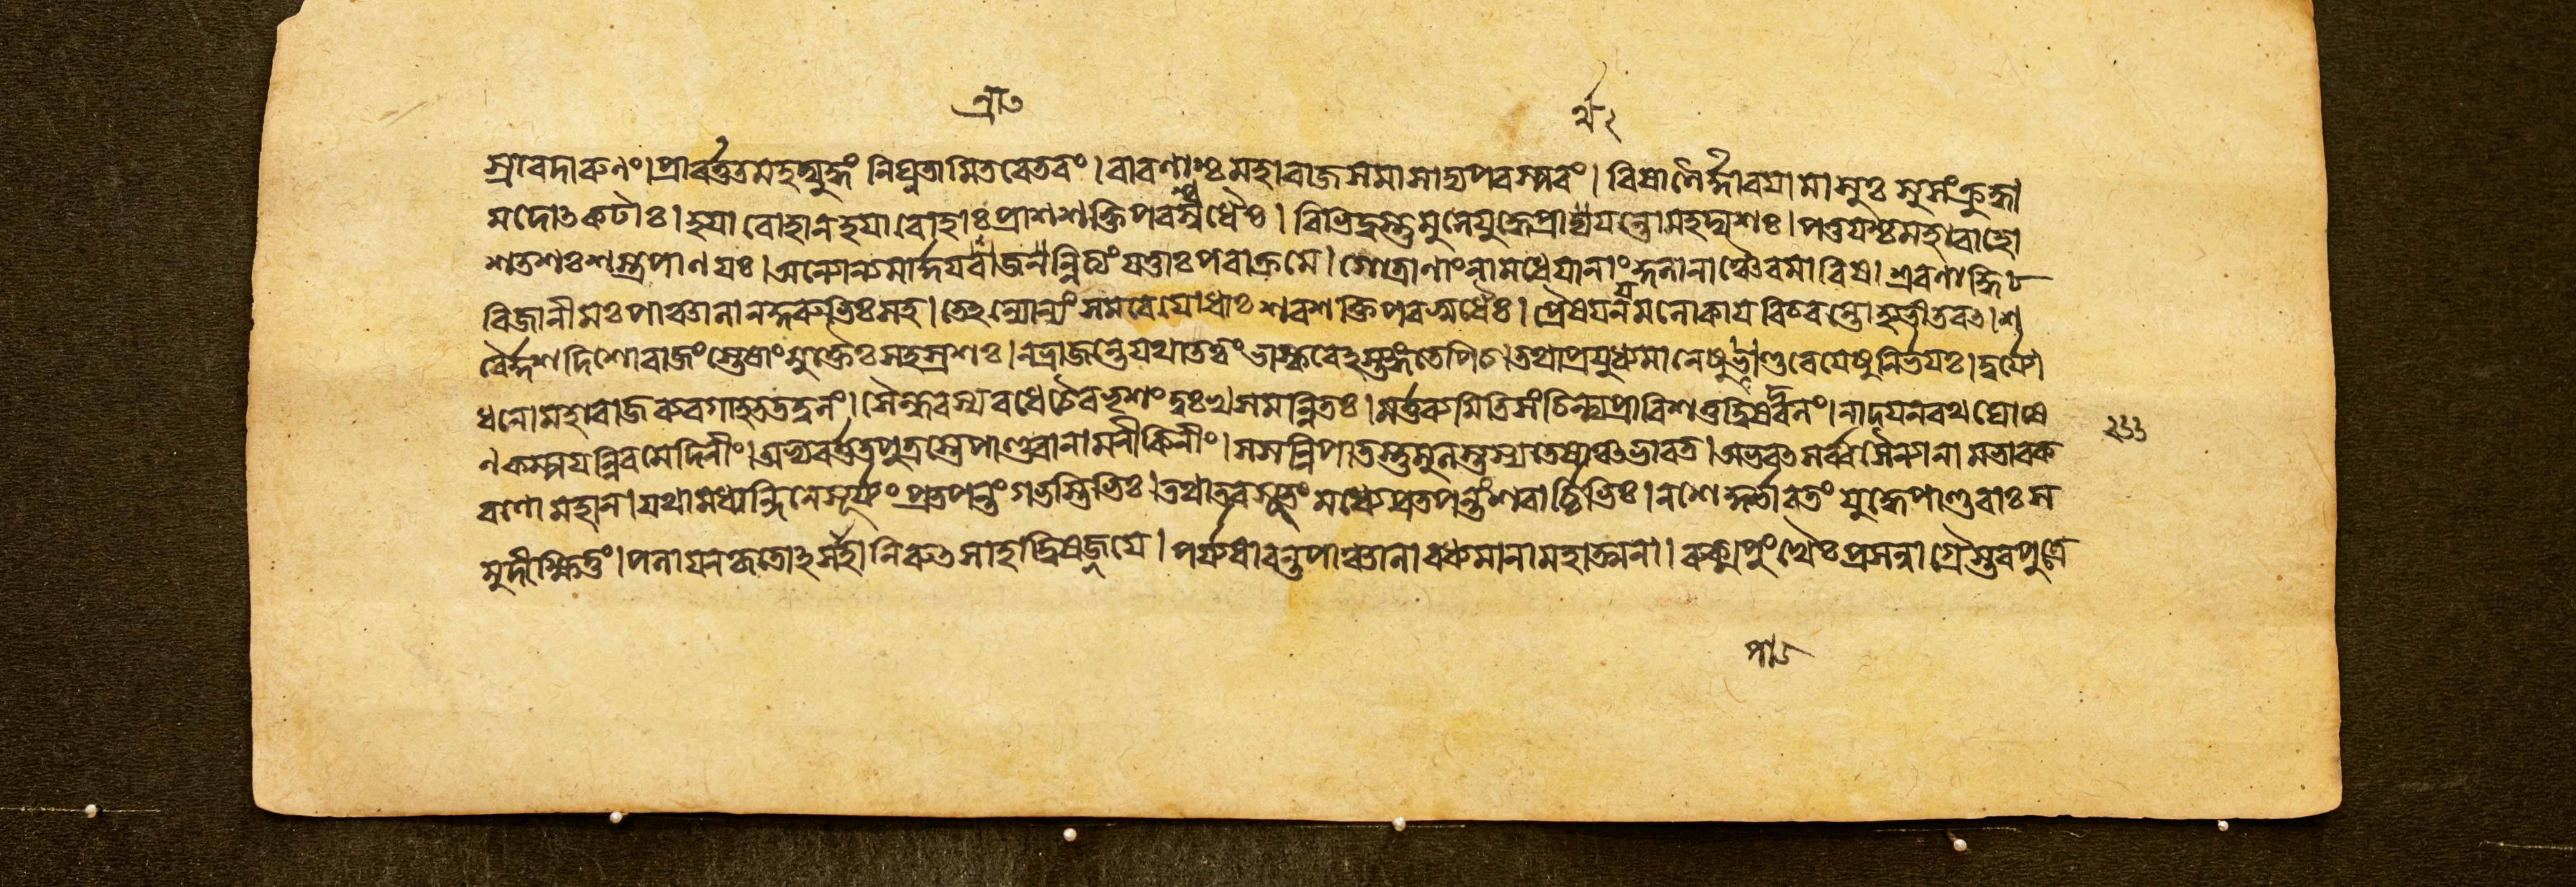 স্রাবেদারুণং। প্রাবর্ত্ততমহদ্যুদ্ধং নিঘ্নতামিতরেতরং। বারণাশ্চমহারাজসমাসাদ্যপরস্পরং। বিষাণৈর্দ্দারযামাসুঃ সুসংক্রুদ্ধা
মদোৎকটাঃ। হযারোহানহযারোহাঃপ্রাশশক্তিপরশ্বধৈঃ। বিভিদুস্তুমুলেযুদ্ধেপ্রার্থযন্তোমহদ্যশঃ। পত্তযশ্চমহাবাহো
শতশঃশস্ত্রপাণযঃ। অন্যোন্যমার্দ্দযরাজন্নিত্যং যত্তাঃপরাক্রমে। গোত্রাণাংনামধেযানাংকুলানাঞ্চৈবমারিষ। শ্রবণাদ্ধি
বিজানীমঃপাঞ্চালানকুরুভিঃসহ। তেহন্যোন্যং সমরেযোধাঃ শরশক্তিপরশ্বধৈঃ। প্রেষযনপরলোকাযবিচরন্তোহ্যভীতবৎ। শ
রৈর্দ্দশদিশোরাজংস্তেষাংমুক্তৈঃসহস্রশঃ। নভ্রাজন্তেযথাতত্ত্বং ভাস্করেহস্তঙ্গতেপিচ। তথাপ্রযুধ্যমানেষুপাণ্ডবেযেষুনির্ভযঃ। দুর্যো
ধনোমহারাজব্যবগাহততদ্বলং। সৈন্ধবস্যবধেনৈবভৃশংদুঃখসমন্বিতঃ। মর্ত্তব্যমিতিসংচিন্ত্যপ্রাবিশত্তুদ্বিষদ্বলং। নাদযনরথঘোষে
ণকম্পযন্নিবমেদিনীং। অভ্যবর্ত্ততপুত্রস্তেপাণ্ডবানামনীকিনীং। সসন্নিপাতস্তুমুলস্তস্যতেষাঞ্চভারত। অভবৎসর্ব্বসৈন্যানামভাবক
রণোমহান। যথামধ্যন্দিনেসূর্য্যং প্রতপন্তং গভস্তিভিঃ। তথাতবসুতং মধ্যেপ্রতপন্তংশরার্চ্চিভিঃ। নশেকুর্ভারতং যুদ্ধেপাণ্ডবাঃস
মুদীক্ষিতুং। পলাযনকৃতোৎসাহানিরুৎসাহাদ্বিষজ্জযে। পর্য্যধাবন্তপাঞ্চালাবধ্যমানামহাত্মনা। রুক্মপুংখৈঃপ্রসন্নাগ্রৈস্তবপুত্রে